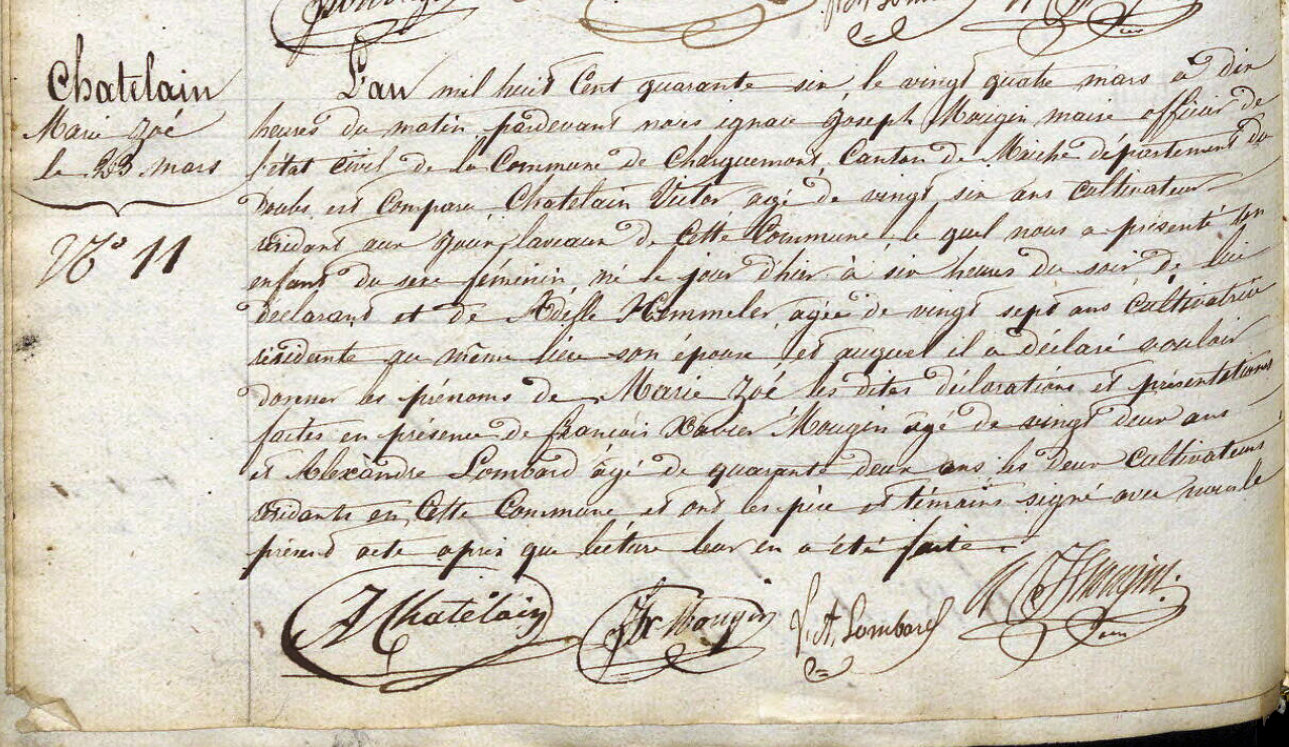 Chatelain
Marie Zoé
le 23 mars
N° 11
L'an mil huit Cent quarante six, le vingt quatre mars à dix
heures du matin, pardevant nous ignace Joseph Mougin maire officier de
l'état civil de la Commune de Charquemont, Canton de Maiche département du
Doubs, est Comparu Chatelain Victor agé de vingt six ans cultivateur
résidant aux de Cette Commune, le quel nous a présenté un
enfant du sexe féminin, né le jour d'hier à six heures du soir de lui
déclarant et de Adèlle Hemmeler, agée de vingt sept ans Cultivatrice
résidente au même lieu son épouse, et auquel il a déclaré vouloir
donner les prénoms de Marie Zoé les dites déclarations et présentations
faites en présence de françois Xavier Mougin agé de vingt deux ans
et Alexandre Lombard âgé de quarante deux ans les deux Cultivateurs
résidants en Cette Commune et ont les père et témoins signé avec nous le
présent acte après que lecture leur en a été faite.
Chatelain
fx Mougin
f. A. Lombard
Mougin